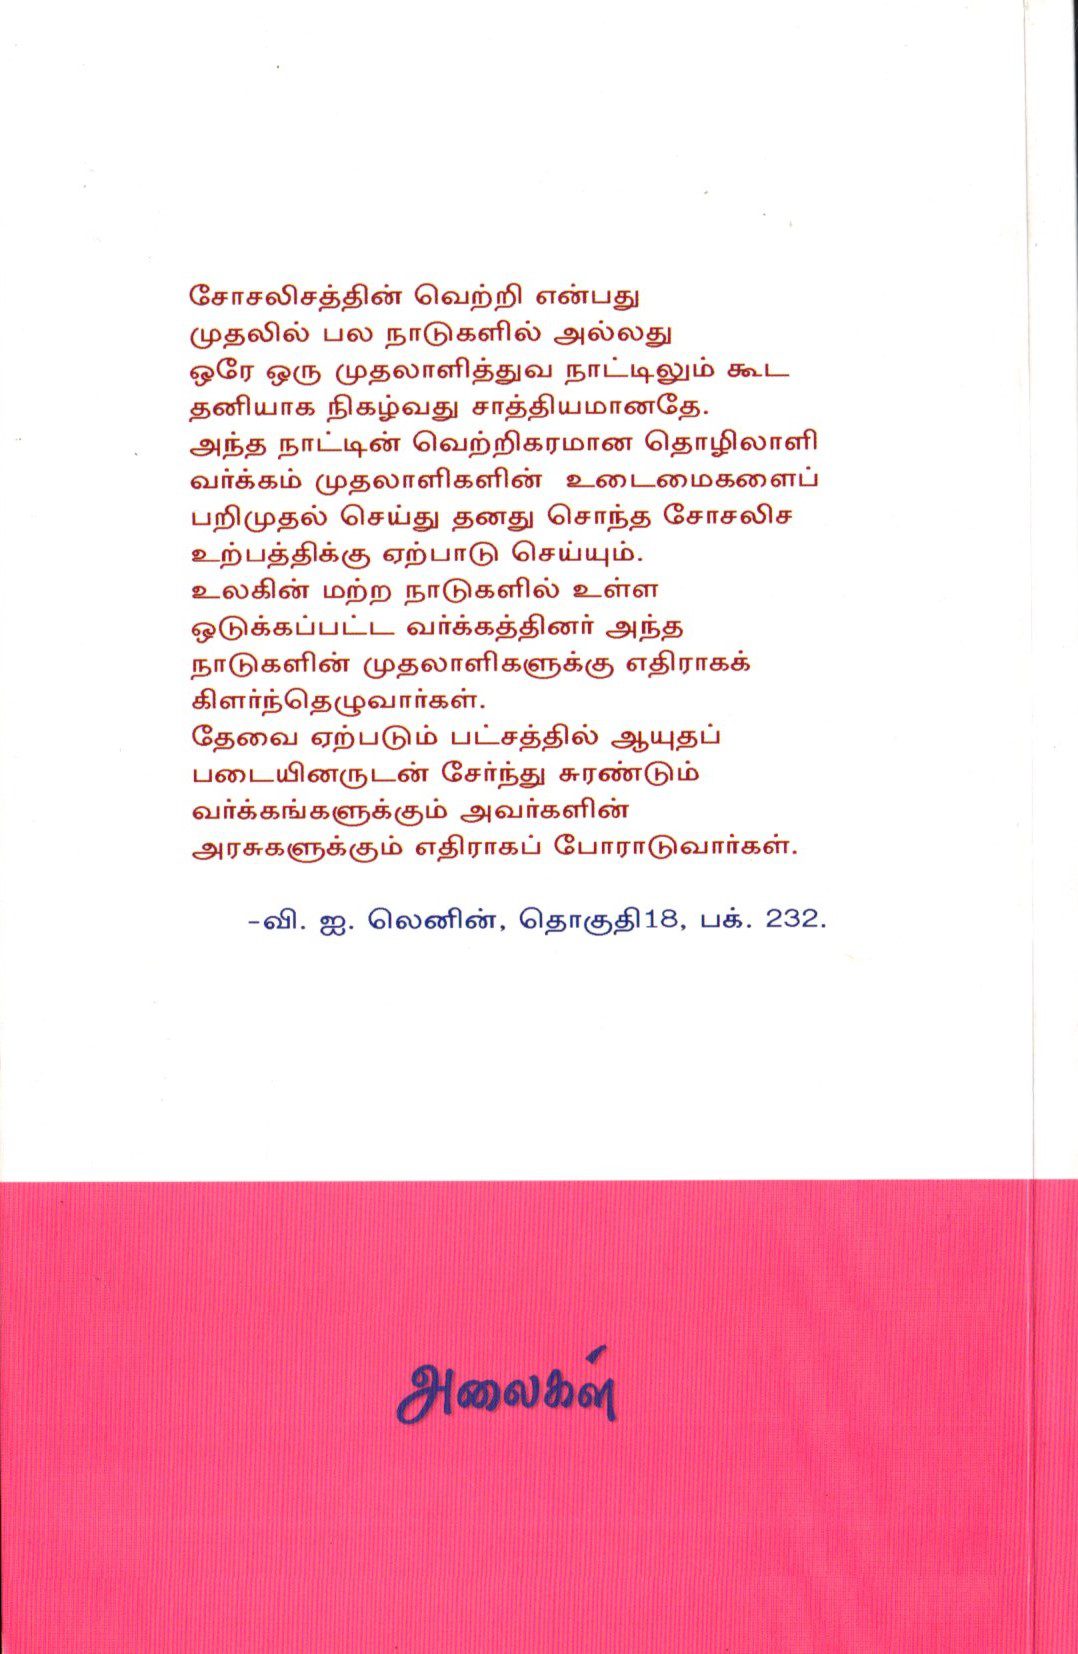 சோசலிசத்தின் வெற்றி என்பது
முதலில் பல நாடுகளில் அல்லது
ஒரே ஒரு முதலாளித்துவ நாட்டிலும் கூட
தனியாக நிகழ்வது சாத்தியமானதே.
அந்த நாட்டின் வெற்றிகரமான தொழிலாளி
வர்க்கம் முதலாளிகளின் உடைமைகளைப்
பறிமுதல் செய்து தனது சொந்த சோசலிச
உற்பத்திக்கு ஏற்பாடு செய்யும்.
உலகின் மற்ற நாடுகளில் உள்ள
ஒடுக்கப்பட்ட வர்க்கத்தினர் அந்த
நாடுகளின் முதலாளிகளுக்கு எதிராகக்
கிளர்ந்தெழுவார்கள்.
தேவை ஏற்படும் பட்சத்தில் ஆயுதப்
படையினருடன் சேர்ந்து சுரண்டும்
வர்க்கங்களுக்கும் அவர்களின்
அரசுகளுக்கும் எதிராகப் போராடுவார்கள்.
-வி. ஐ. லெனின், தொகுதி18, பக். 232.
அலைகள்